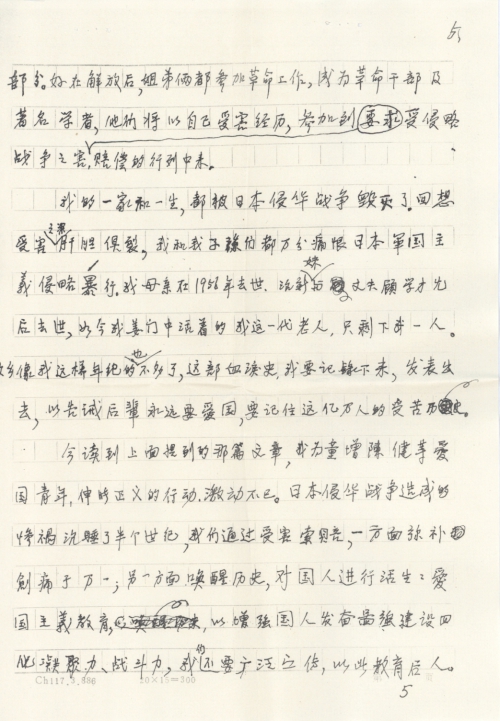 部分。好在解放后,姐弟俩都参加革命工作,成为革命干部及
著名学者,他们将以自己受害经历,参加到要求受侵略
战争之害,赔偿的行列中来。
我的一家和一生,都被日本侵华战争毁灭了。回想
受害之深肝胆俱裂,我和我子孫们都万分痛恨日本军国主
義侵略暴行。我母亲在1956年去世.沈氏妹丈夫顾学才先
后去世,如今我姜门中活着的我这一代老人,只剩下我一人。
故乡像我这样年纪的也不多了,这部血淚史,我要记録下来,发表出
去,以告诫后輩永远要爱国,要记住这亿万人的受苦历史。
今读到上面提到的那篇文章,我为童增陳健等爱
国青年,伸张正义的行动.激动不已。日本侵华战争造成的
惨禍沉睡了半个世纪,我们通过受害索赔,一方面弥补
创痛于万一;另一方面唤醒历史,对国人进行活生:爱
国主義教育,以增强国人发奋圖强建设四
化凝聚力、战斗力,我们还要广泛宣传,以此教育后人。
Ch117.3.886
20×15=300
5